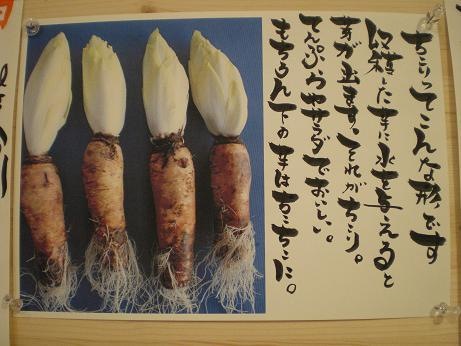 ちこりってこんな形です
収穫した芋に水を与えると
芽が出ます。それがちこり。
てんぷらやサラダでおいしい。
もちろん下の芋はちこちこに。